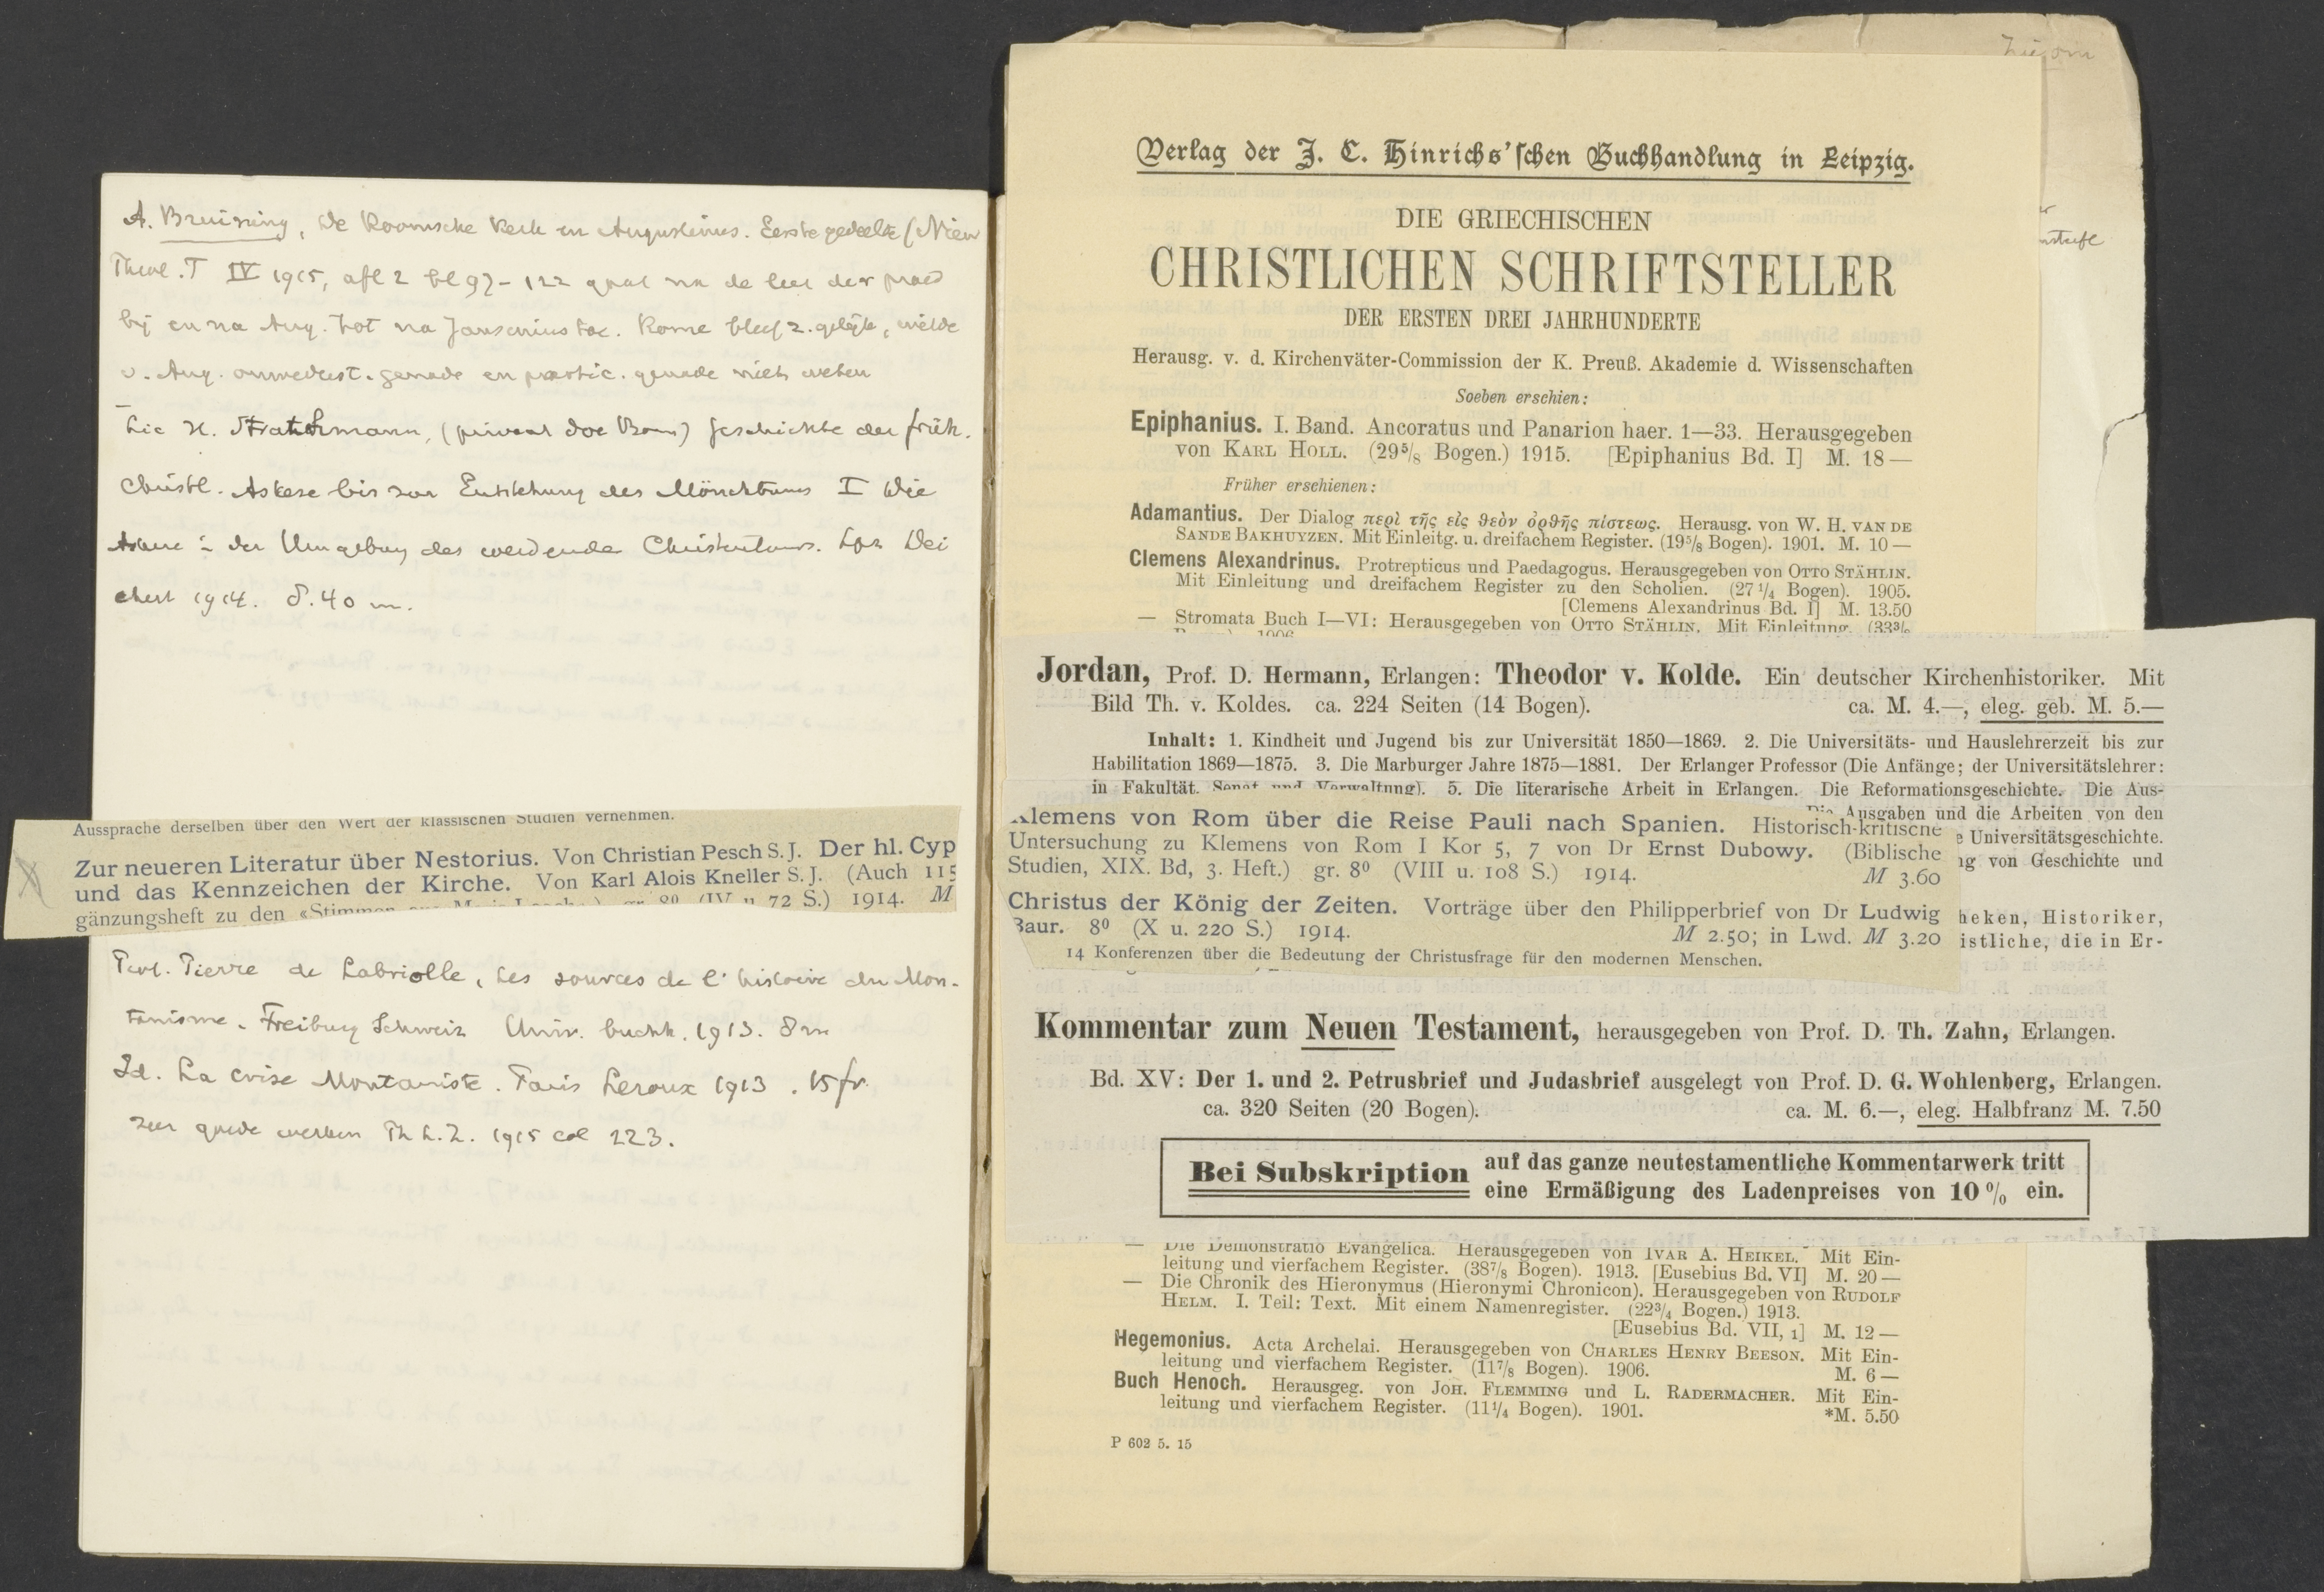 A. Bruining, De Roomsche Kerk en Augustinus. Eerste gedeelte (Nieuw
Theol. T IV 1915, afl 2 bl 97-122 gaat na de leer der praed
bij en na Aug. tot na Jansenius toe. Rome bleef z. gelijk, wilde
v. Aug. gemade en practic. genade niets weten
Lic H. Strathmann, (privaat doc Bonn) Geschichte der früh.
Christl. Askese bis zur Entstehung des Mönchtums I Die
Askese in der Umgebung des werdende Christentums. Lpz Dei
chert 1914. 8.40 m.
Aussprache derselben über den Wert der klassischen Studien vernehmen.
Zur neueren Literatur über Nestorius. Von Christian Pesch S. J. Der hl. Cyp
und das Kennzeichen der Kirche. Von Karl Alois Kneller S. J. (Auch 115
gänzungsheft zu den «Stimmen (IV u. 72 S.) 1914. M
Prof. Pierre de Labriolle, Les sources de l'histoire du Mon-
tanisme. Freiburg Schweiz Univ. buchh. 1913. 8 m
Id. La crise Montaniste. Paris Leroux 1913. 15 fr.
zeer goede werken Th L. Z. 1915 col 223.
Verlag der J. C. Hinrichs'schen Buchhandlung in Leipzig.
DIE GRIECHISCHEN
CHRISTLICHEN SCHRIFTSTELLER
DER ERSTEN DREI JAHRHUNDERTE
Herausg. v. d. Kirchenväter-Commission der K. Preuß. Akademie d. Wissenschaften
Soeben erschien:
Epiphanius. I. Band. Ancoratus und Panarion haer. 1—33. Herausgegeben
von KARL HOLL. (29⁵/₈ Bogen.) 1915. [Epiphanius Bd. I] M. 18—
Früher erschienen:
Adamantius. Der Dialog περὶ τῆς εἰς θεὸν ὀρθῆς πίστεως. Herausg. von W. H. VAN DE
SANDE BAKHUYZEN. Mit Einleitg. u. dreifachem Register. (19⁵/₈ Bogen). 1901. M. 10—
Clemens Alexandrinus. Protrepticus und Paedagogus. Herausgegeben von OTTO STÄHLIN.
Mit Einleitung und dreifachem Register zu den Scholien. (27¹/₄ Bogen). 1905.
[Clemens Alexandrinus Bd. I] M. 13.50
— Stromata Buch I—VI: Herausgegeben von OTTO STÄHLIN. Mit Einleitung. (33³/₈
1906
Jordan, Prof. D. Hermann, Erlangen: Theodor v. Kolde. Ein deutscher Kirchenhistoriker. Mit
Bild Th. v. Koldes. ca. 224 Seiten (14 Bogen). ca. M. 4.—, eleg. geb. M. 5.—
Inhalt: 1. Kindheit und Jugend bis zur Universität 1850—1869. 2. Die Universitäts- und Hauslehrerzeit bis zur
Habilitation 1869—1875. 3. Die Marburger Jahre 1875—1881. Der Erlanger Professor (Die Anfänge; der Universitätslehrer:
in Fakultät, Senat und Verwaltung). 5. Die literarische Arbeit in Erlangen. Die Reformationsgeschichte. Die Aus-
Ausgaben und die Arbeiten von den
e Universitätsgeschichte.
ng von Geschichte und
heken, Historiker,
istliche, die in Er-
Klemens von Rom über die Reise Pauli nach Spanien. Historisch-kritische
Untersuchung zu Klemens von Rom I Kor 5, 7 von Dr Ernst Dubowy. (Biblische
Studien, XIX. Bd, 3. Heft.) gr. 8⁰ (VIII u. 108 S.) 1914. M 3.60
Christus der König der Zeiten. Vorträge über den Philipperbrief von Dr Ludwig
Baur. 8⁰ (X u. 220 S.) 1914. M 2.50; in Lwd. M 3.20
14 Konferenzen über die Bedeutung der Christusfrage für den modernen Menschen.
Kommentar zum Neuen Testament, herausgegeben von Prof. D. Th. Zahn, Erlangen.
Bd. XV: Der 1. und 2. Petrusbrief und Judasbrief ausgelegt von Prof. D. G. Wohlenberg, Erlangen.
ca. 320 Seiten (20 Bogen). ca. M. 6.—, eleg. Halbfranz M. 7.50
Bei Subskription auf das ganze neutestamentliche Kommentarwerk tritt
eine Ermäßigung des Ladenpreises von 10 % ein.
— Die Demonstratio Evangelica. Herausgegeben von IVAR A. HEIKEL. Mit Ein-
leitung und vierfachem Register. (38⁷/₈ Bogen). 1913. [Eusebius Bd. VI] M. 20—
— Die Chronik des Hieronymus (Hieronymi Chronicon). Herausgegeben von RUDOLF
HELM. I. Teil: Text. Mit einem Namenregister. (22³/₄ Bogen.) 1913.
[Eusebius Bd. VII, 1] M. 12—
Hegemonius. Acta Archelai. Herausgegeben von CHARLES HENRY BEESON. Mit Ein-
leitung und vierfachem Register. (11⁷/₈ Bogen). 1906. M. 6—
Buch Henoch. Herausgeg. von JOH. FLEMMING und L. RADERMACHER. Mit Ein-
leitung und vierfachem Register. (11¹/₄ Bogen). 1901. *M. 5.50
P 602 5. 15